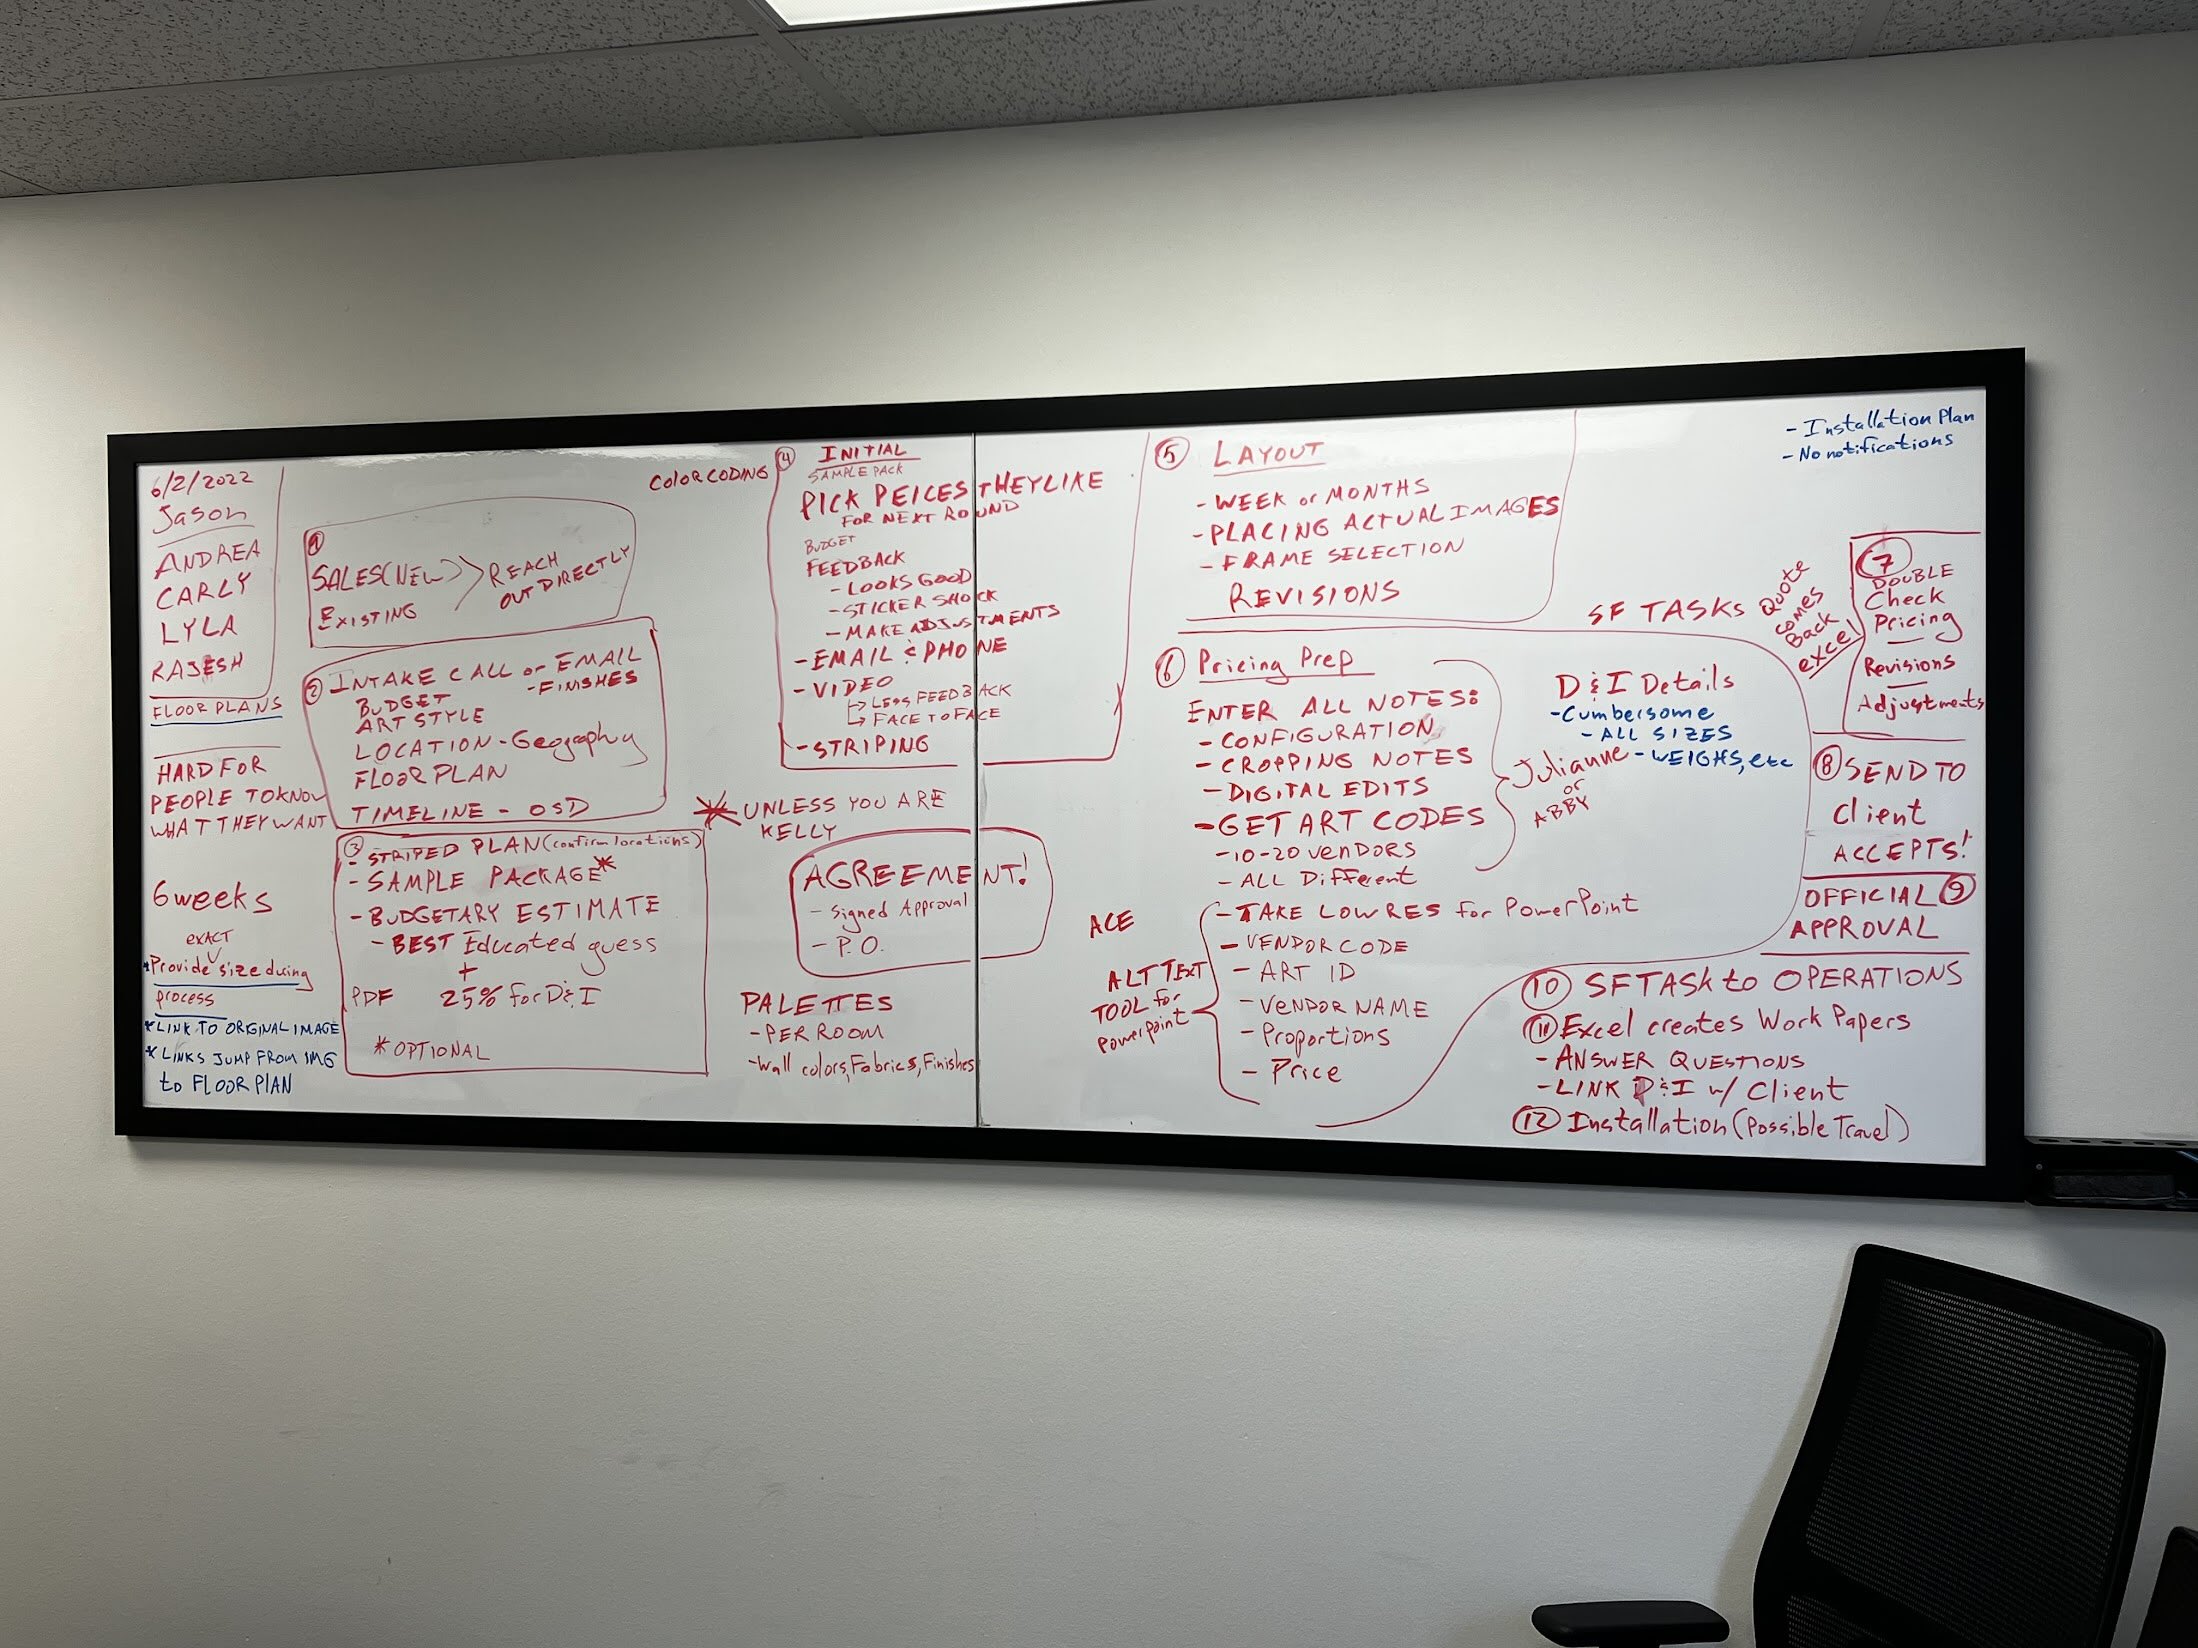 6/2/2022
Jason
ANDREA
CARLY
LYLA
RAJESH
FLOOR PLANS
HARD FOR
PEOPLE TO KNOW
WHAT THEY WANT
6 weeks
EXACT
*Provide size during
process
*LINK TO ORGINAL IMAGE
*LINKS JUMP FROM IMG
to FLOOR PLAN
1
SALES(NEW) > REACH
OUT DIRECTLY
EXISTING
2 INTAKE CALL or EMAIL
BUDGET - FINISHES
ART STYLE
LOCATION - Geography
FLOOR PLAN
TIMELINE - OSD
3
- STRIPED PLAN (confirm locations)
- SAMPLE PACKAGE*
- BUDGETARY ESTIMATE
- BEST Educated guess
+
PDF 25% for D&I
*OPTIONAL
COLOR CODING
4 INITIAL
SAMPLE PACK
PICK PEICES THEY LIKE
FOR NEXT ROUND
BUDGET
FEEDBACK
- LOOKS GOOD
- STICKER SHOCK
- MAKE ADJUSTMENTS
- EMAIL & PHONE
- VIDEO
↳ LESS FEEDBACK
↳ FACE TO FACE
- STRIPING
* UNLESS YOU ARE
KELLY
AGREEMENT!
- Signed Approval
- P.O.
PALETTES
- PER ROOM
- Wall colors, Fabrics, Finishes
5 LAYOUT
- WEEK or MONTHS
- PLACING ACTUAL IMAGES
- FRAME SELECTION
REVISIONS
6 Pricing Prep
ENTER ALL NOTES:
- CONFIGURATION
- CROPPING NOTES
- DIGITAL EDITS
- GET ART CODES
- 10-20 VENDORS
- ALL Different
Julianne
or
ABBY
ACE
ALT TEXT
TOOL for
PowerPoint
- TAKE LOW RES for PowerPoint
- VENDOR CODE
- ART ID
- VENDOR NAME
- Proportions
- Price
SF TASKS
D & I Details
- Cumbersome
- ALL SIZES
- WEIGHS, etc
- Installation Plan
- No notifications
Quote
comes
Back
excel
7
DOUBLE
Check
Pricing
Revisions
Adjustments
8 SEND TO
Client
ACCEPTS!
OFFICIAL 9
APPROVAL
10 SF TASK to OPERATIONS
11 Excel creates Work Papers
- ANSWER QUESTIONS
- LINK D&I w/ Client
12 Installation (Possible Travel)